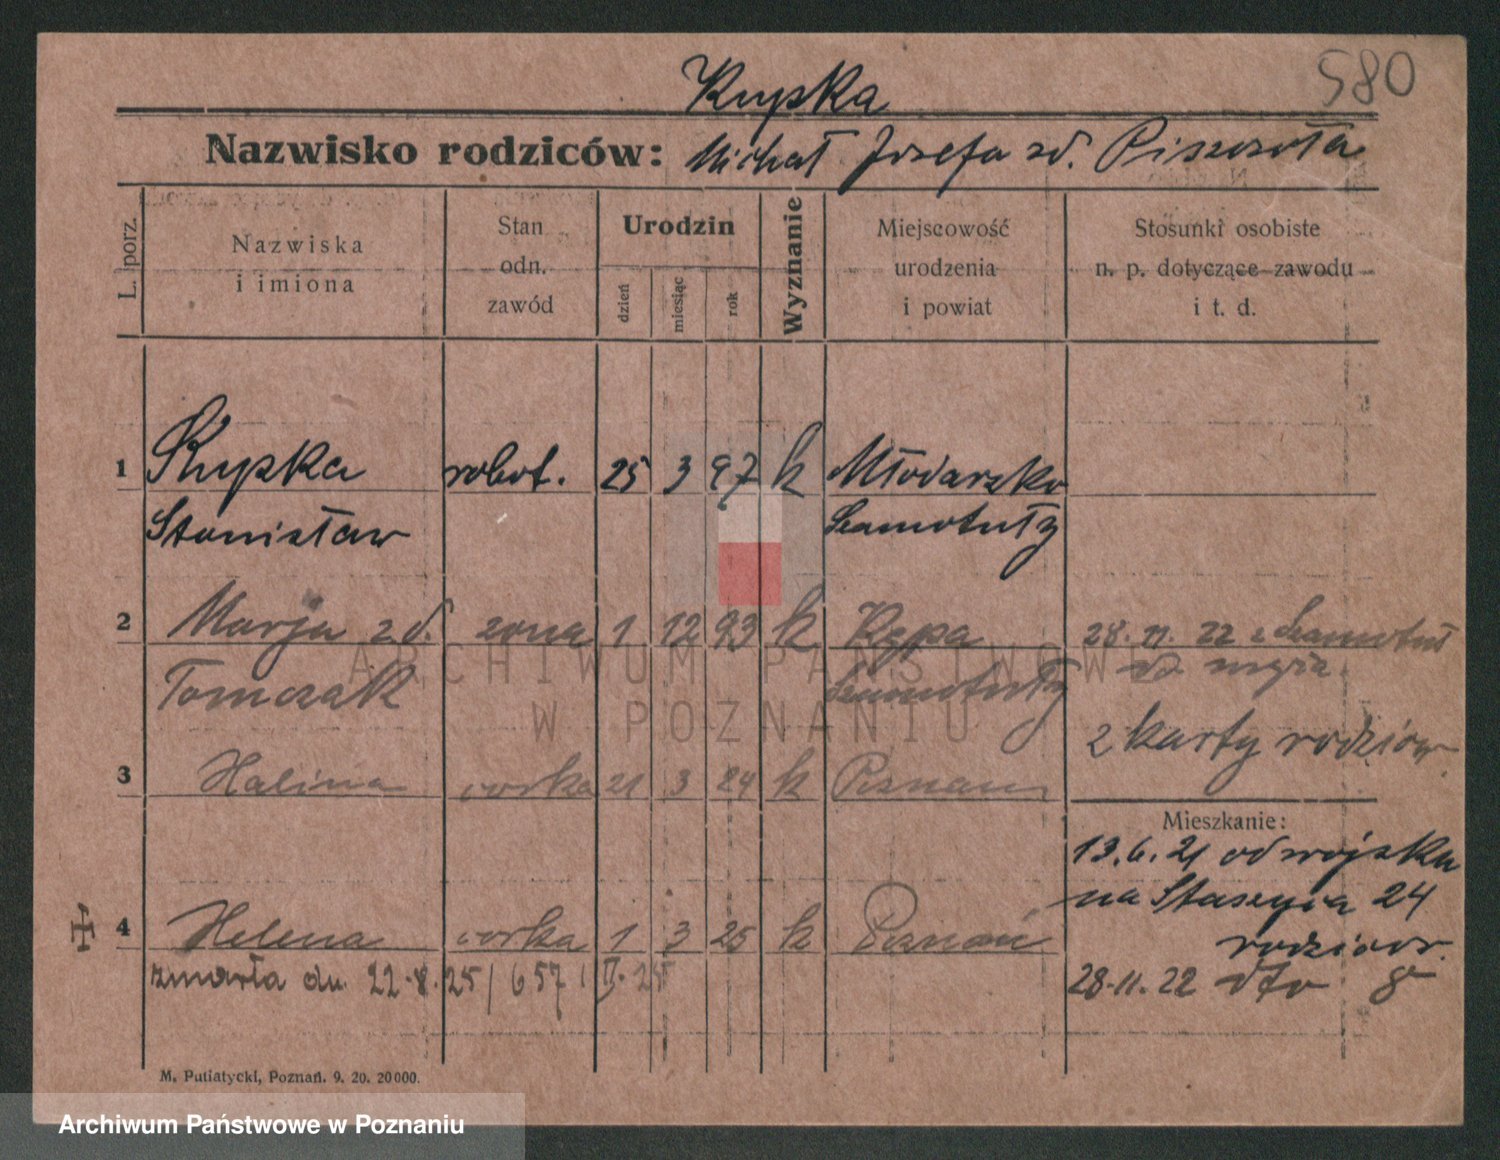 580
Kupka
Nazwisko rodziców: Michał Józefa zd. Piszczoła
L. porz.
Nazwiska i imiona
Stan odn. zawód
Urodzin
dzień
miesiąc
rok
Wyznanie
Miejscowość urodzenia i powiat
Stosunki osobiste n. p. dotyczące zawodu i t. d.
1 Kupka robot. 25 3 97 k Młodarsko
Stanisław Szamotuły
2 Marja zd. żona 1 12 93 k Kępa 28. 11. 22 z Szamotuł
Tomczak Szamotuły do męża
2 karty rodziców
3 Halina córka 21 3 24 k Poznań
Mieszkanie:
13.6.21 od wojska
na Staszyca 24
rodziców.
4 Helena córka 1 3 25 k Poznań
zmarła dn. 22.8.25/657/II.25
28.11.22 dto
M. Putiatycki, Poznań. 9. 20. 20000.
ARCHIWUM PAŃSTWOWE
W POZNANIU
Archiwum Państwowe w Poznaniu